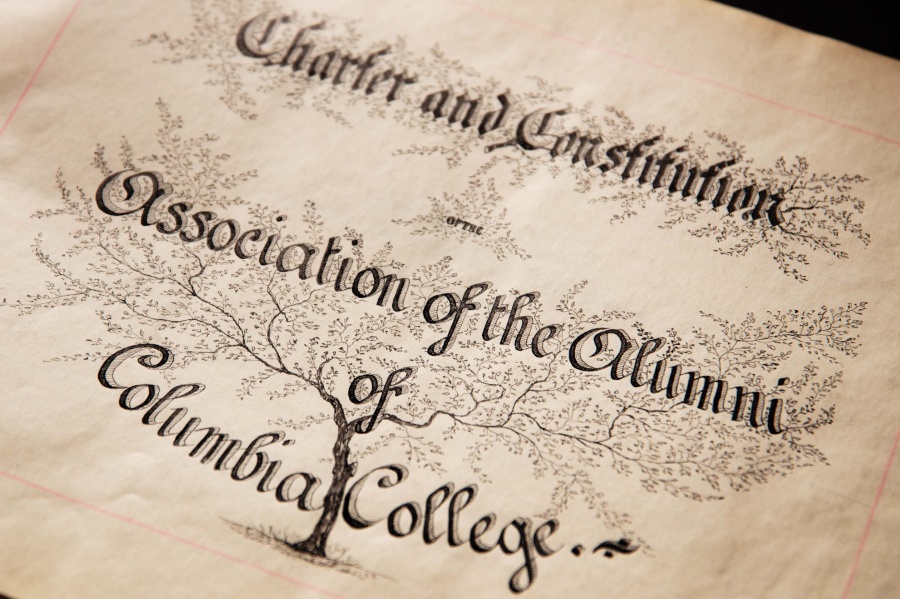 Charter and Constitution
OF THE
Association of the Alumni
of
Columbia College.